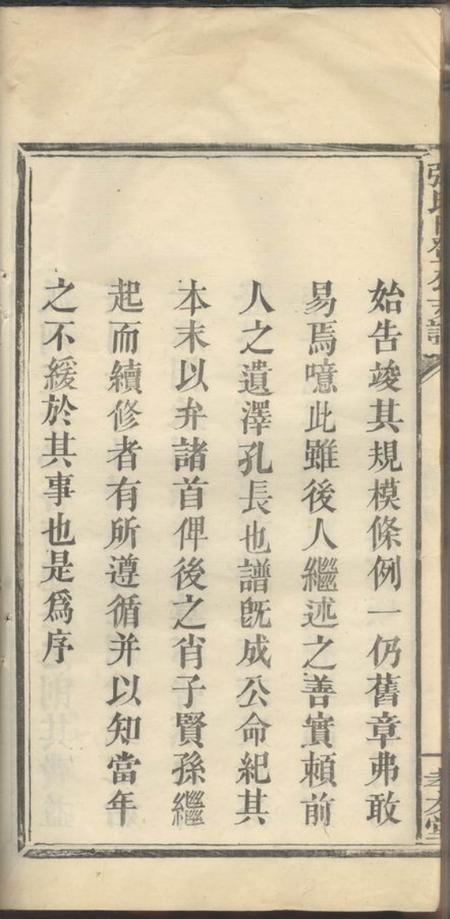 始告竣其規模條例一仍舊章弗敢
易焉噫此雖後人繼述之善實賴前
人之遺澤孔長也譜旣成公命紀其
本末以弁諸首俾後之肖子賢孫繼
起而續修者有所遵循并以知當年
之不緩於其事也是爲序